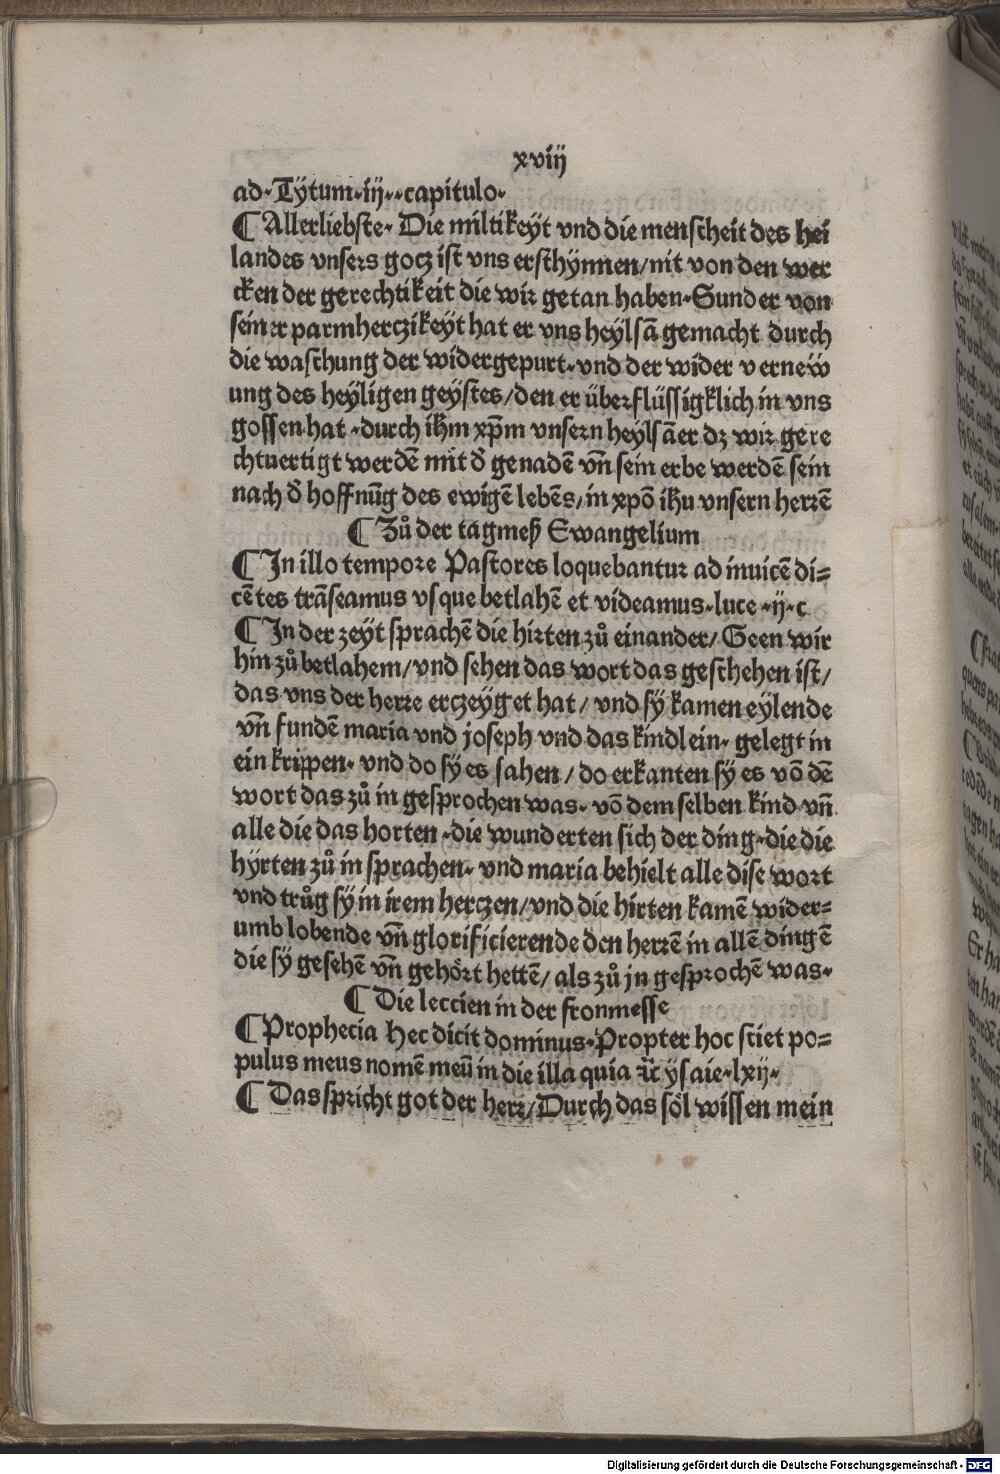 xviij
ad·Tytum·iij··capitulo·
¶ Allerliebste· Die miltikeÿt vnd die menscheit des hei
landes vnsers gocz ist vns ersthynnen/nit von den wer
cken der gerechtikeit die wir getan haben·Sunder von
seiner parmherczikeÿt hat er vns heÿlsā gemacht durch
die waschung der widergepurt·vnd der wider vernew̎
ung des heÿligen geÿstes/den er überflüssigklich in vns
gossen hat·durch ihm xp̄m vnsern heÿlsāer dz wir gere
chtuertigt werdē mit d̄ genadē vn̄ sein erbe werdē sein
nach d̄ hoffnūg des ewigē lebēs/in xpō ihu vnsern herrē
¶ Zů der tagmeß Ewangelium
¶ In illo tempore Pastores loquebantur ad inuicē di=
cētes trāseamus vsque betlahē et videamus·luce·ij·c
¶ In der zeÿt sprachē die hirten zů einander/Geen wir
hin zů betlahem/vnd sehen das wort das geschehen ist/
das vns der herre erczeÿget hat/vnd sÿ kamen eÿlende
vn̄ fundē maria vnd joseph vnd das kindlein·gelegt in
ein krippen·vnd do sÿ es sahen/do erkanten sÿ es vō dē
wort das zů in gesprochen was·vō dem selben kind vn̄
alle die das horten·die wunderten sich der ding·die die
hÿrten zů in sprachen·vnd maria behielt alle dise wort
vnd trůg sÿ in irem herczen/vnd die hirten kamē wider=
umb lobende vn̄ glorificierende den herrē in allē dingē
die sÿ gesehē vn̄ gehört hettē/als zů jn gesprochē was·
¶ Die leccien in der fronmesse
¶ Prophecia Hec dicit dominus·Propter hoc sciet po=
pulus meus nomē meū in die illa quia ⁊c̄ ysaie·lxij·
¶ Das spricht got der herr/Durch das söl wissen mein
Digitalisierung gefördert durch die Deutsche Forschungsgemeinschaft - DFG